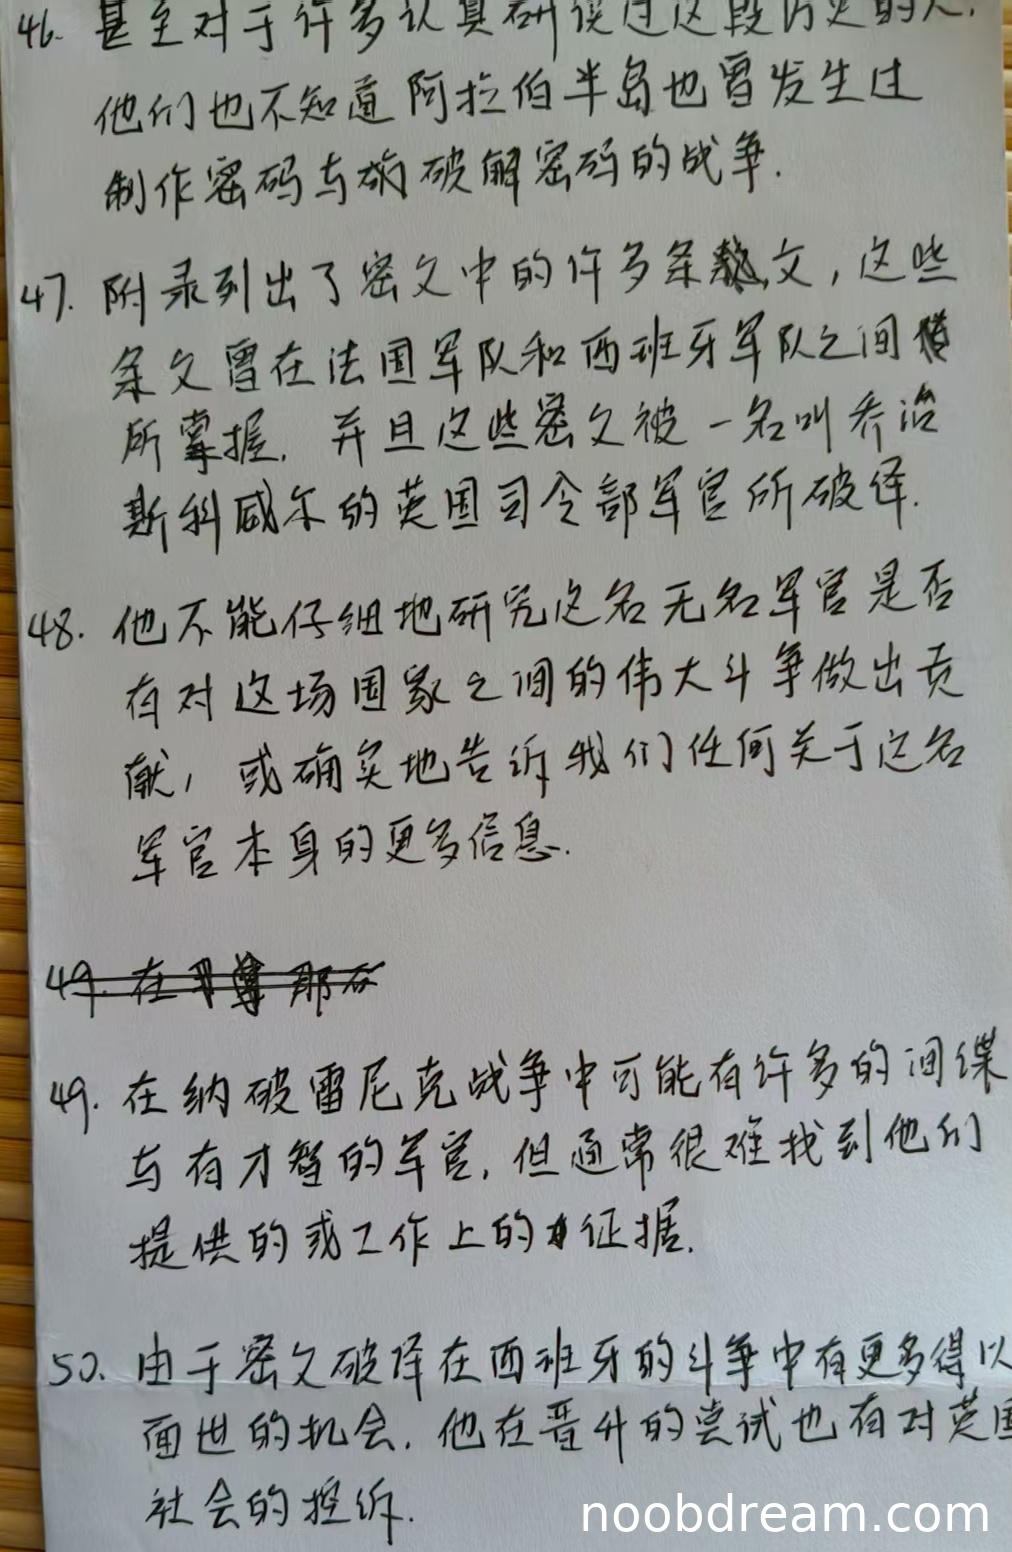 46. 甚至对于许多认真研读过这段历史的人,
他们也不知道阿拉伯半岛也曾发生过
制作密码与破解密码的战争.
47. 附录列出了密文中的许多条文, 这些
条文曾在法国军队和西班牙军队之间
所掌握. 并且这些密文被一名叫乔治
斯科威尔的英国司令部军官所破译.
48. 他不能仔细地研究这名无名军官是否
有对这场国家之间的伟大斗争做出贡
献, 或确实地告诉我们任何关于这名
军官本身的更多信息.
49. 在 那
49. 在纳破雷尼克战争中可能有许多的间谍
与有才智的军官, 但通常很难找到他们
提供的或工作上的证据.
50. 由于密文破译在西班牙的斗争中有更多得以
面世的机会. 他在晋升的尝试也有对英国
社会的控诉.
noobdream.com